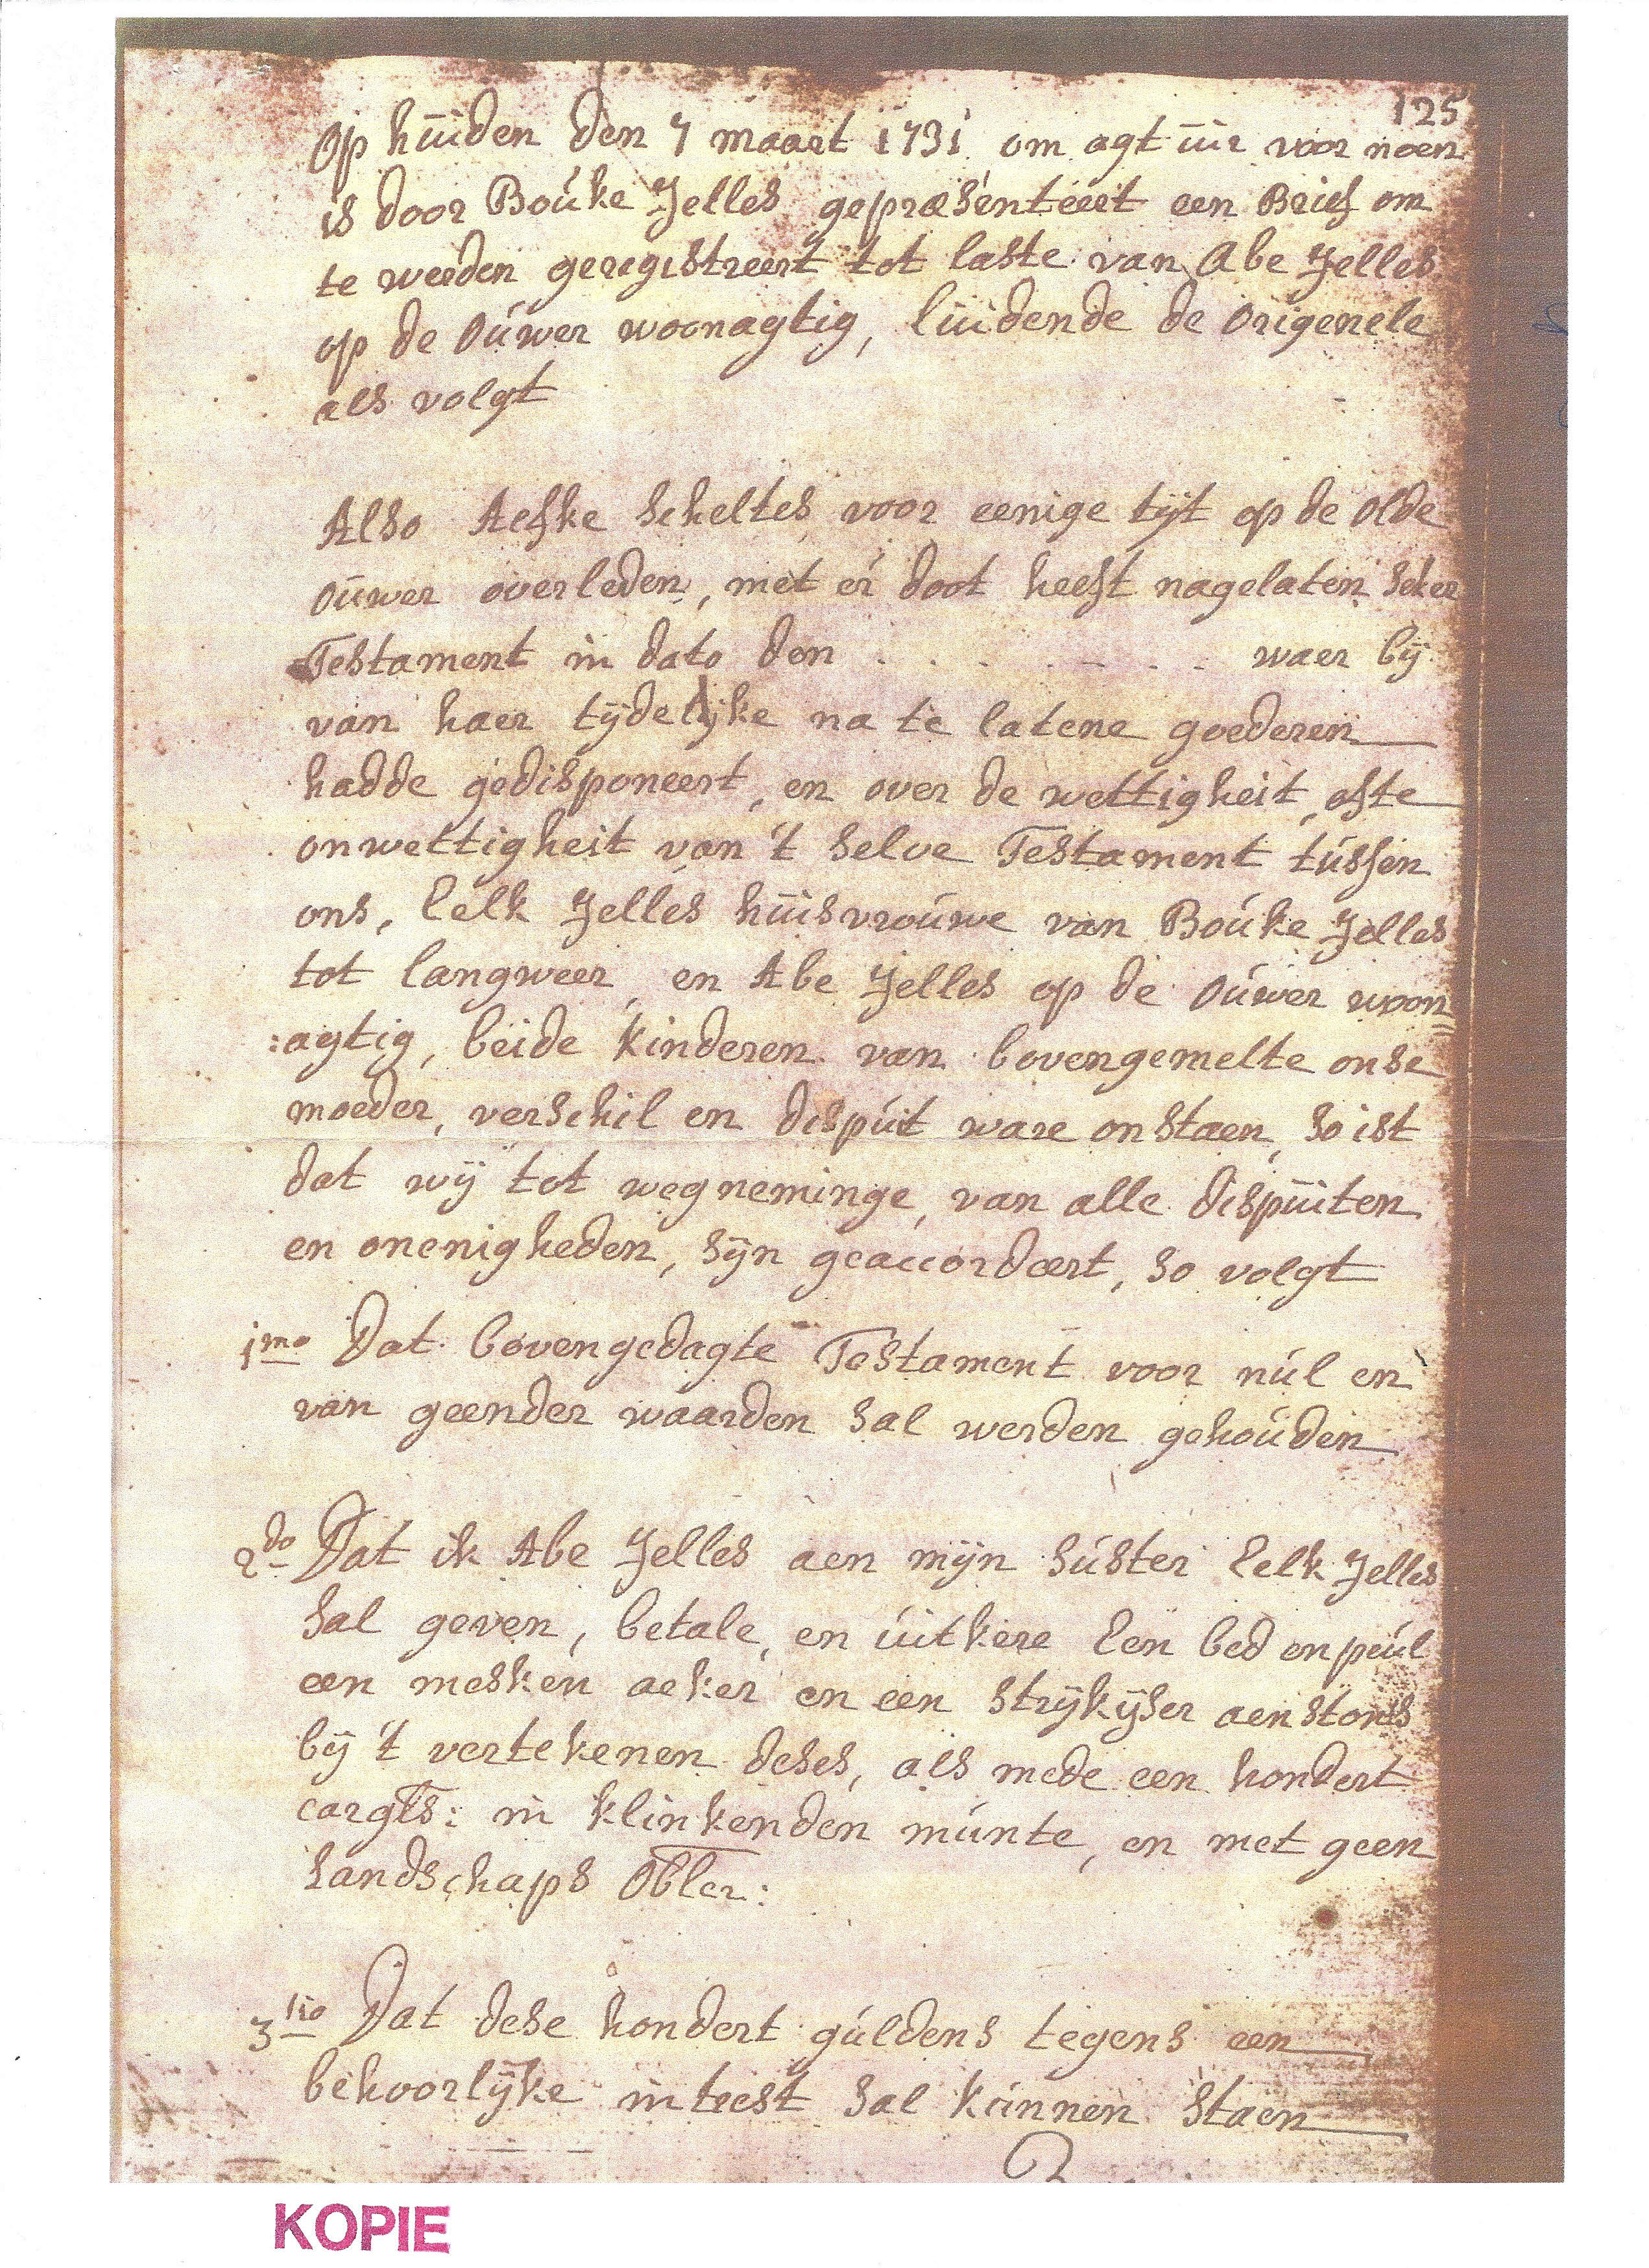 125
Op huiden den 7 maart 1731 om agt uir voor noen
is door Bouke Jelles gepræsenteert een Brief om
te werden geregistreert tot laste van Abe Jelles
op de Ouwer woonagtig, luidende de Origenele
als volgt
Also Aefke Scheltes voor eenige tijt op de Olde
ouwer overleden, met er doot heeft nagelaten seker
Testament in dato den . . . . - . . waer bij
van haer tijdelijke na te latene goederen
hadde gedisponeert, en over de wettigheit, ofte
onwettigheit van 't selve Testament tussen
ons, Eelk Jelles huisvrouwe van Bouke Jelles
tot langweer, en Abe Jelles op de Ouwer woon=
:agtig, beide kinderen van bovengemelte onse
moeder, verschil en disput ware onstaen, so ist
dat wij tot wegneminge, van alle dispuiten
en onenigheden, sijn geaccordeert, so volgt
1mo Dat bovengedagte Testament voor nul en
van geender waarden sal werden gehouden
2do Dat ik Abe Jelles aen mijn suster Eelk Jelles
sal geven, betale, en uitkere Een bed en peul
een mesken aeker en een strijkijser aenstons
bij 't vertekenen deses, als mede een hondert
cargls: in klinkenden munte, en met geen
Landschaps Obler:
3tio Dat dese hondert guldens tegens een
behoorlijke interest sal kunnen staen
KOPIE